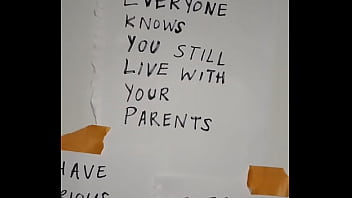 EVERYONE
KNOWS
YOU STILL
LIVE WITH
YOUR
PARENTS
HAVE